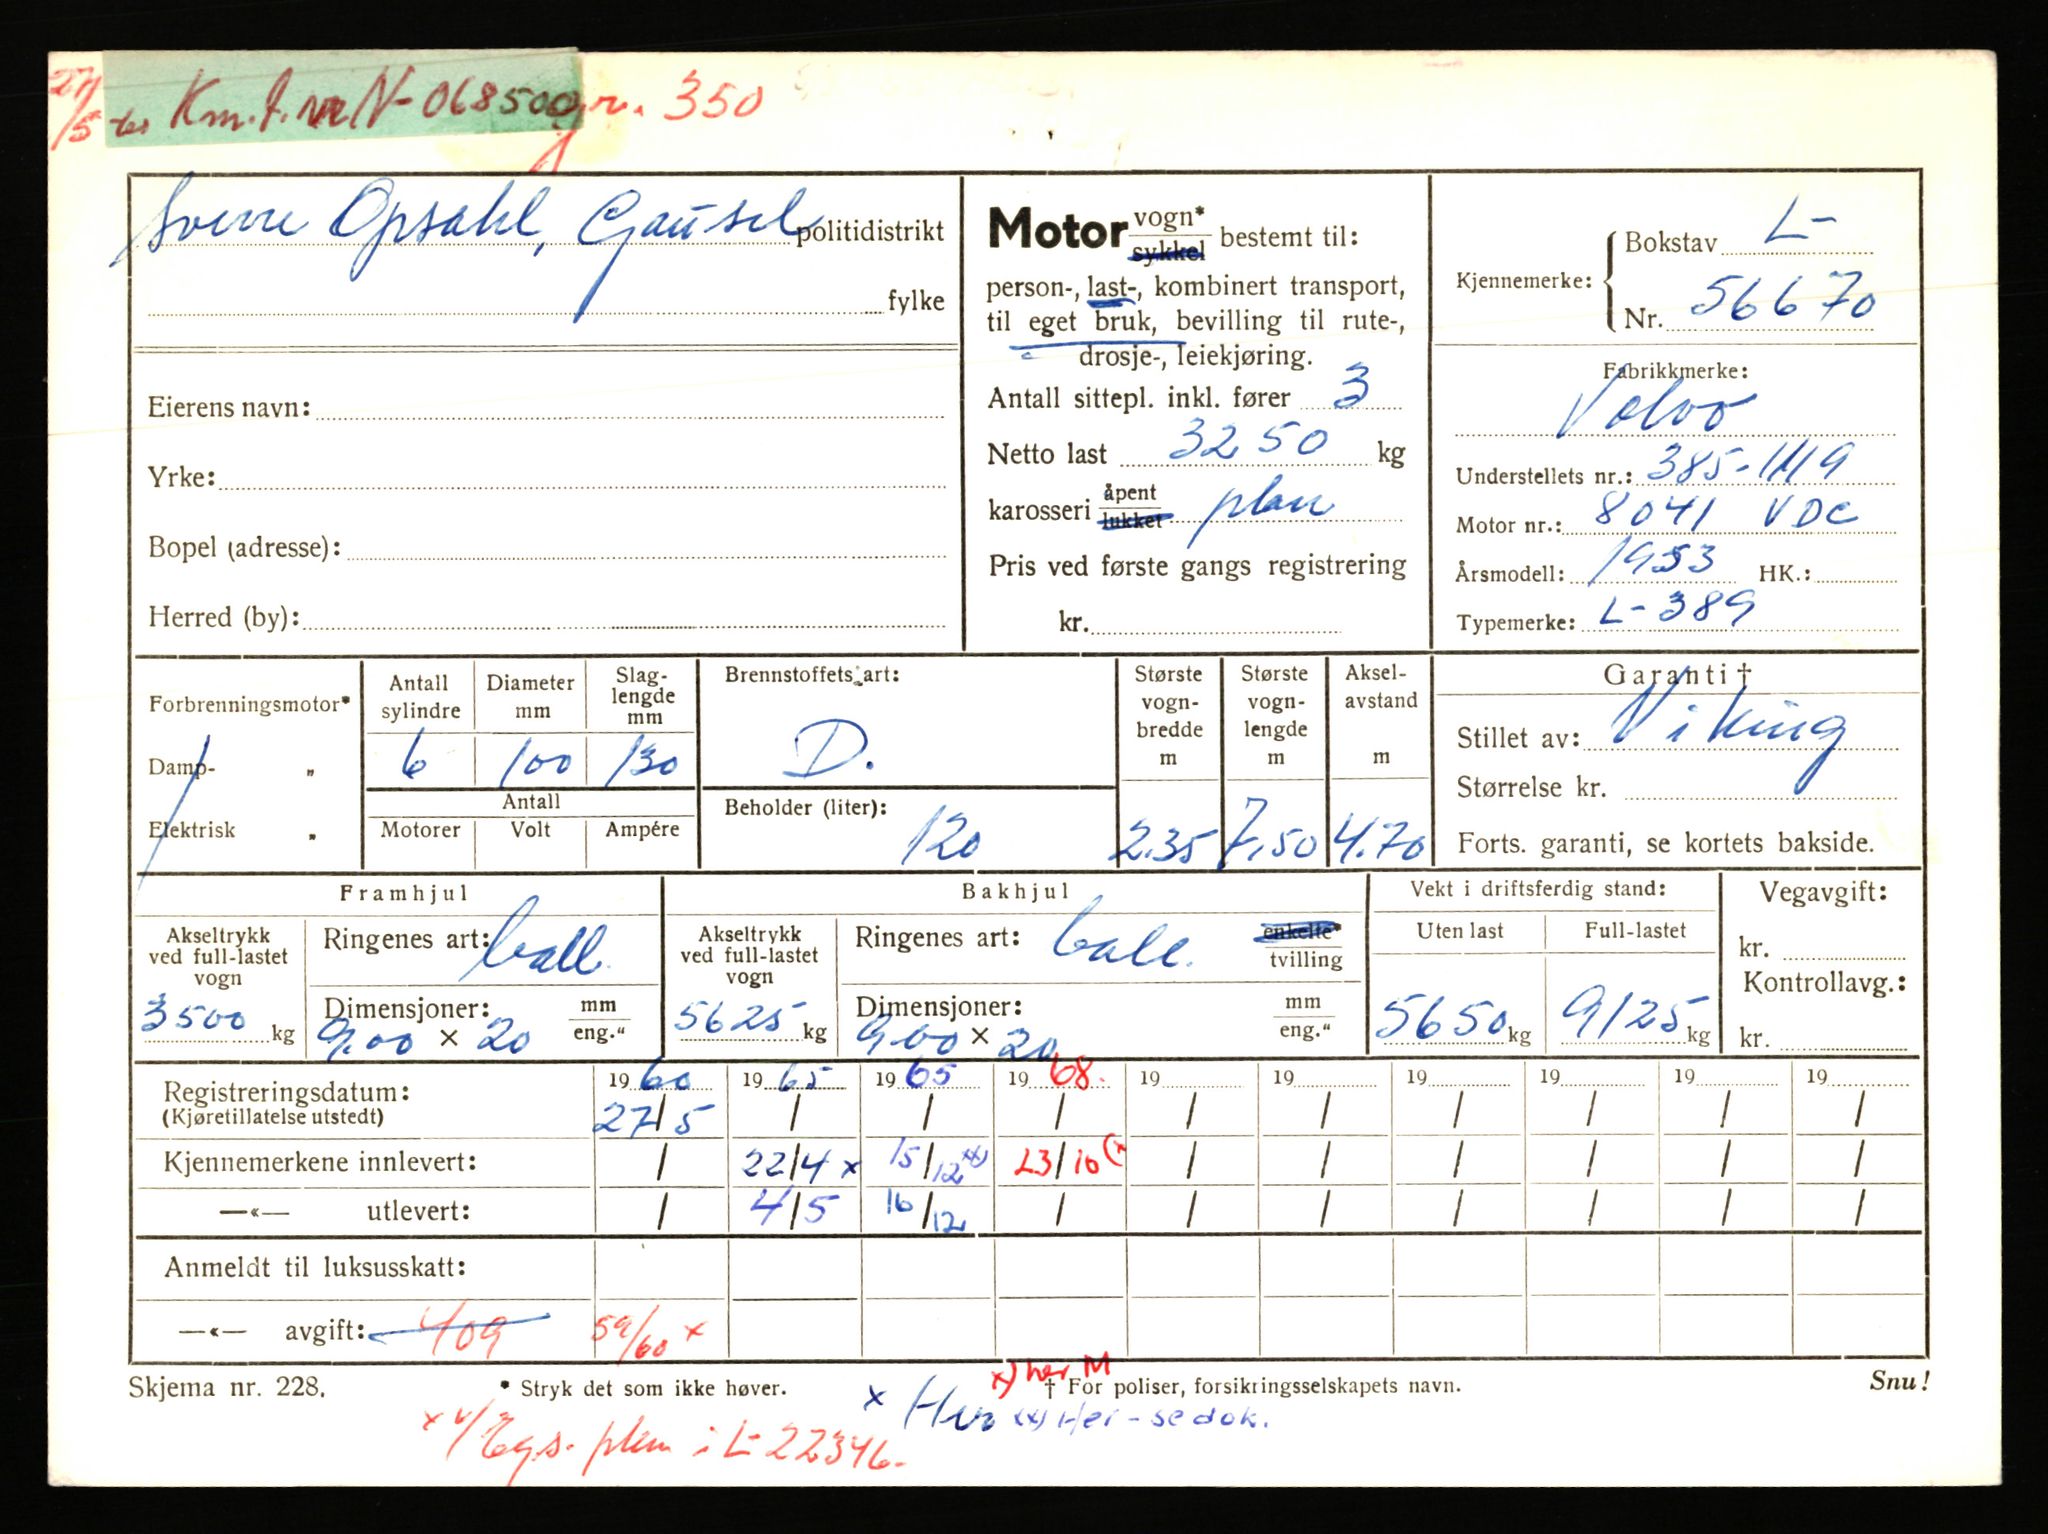 27/5 Km.t. nr N-068500 gr. 350
Sverre Opsahl, Gausel politidistrikt
fylke
Eierens navn:
Yrke:
Bopel (adresse):
Herred (by):
Motor vogn* sykkel bestemt til:
person-, last-, kombinert transport,
til eget bruk, bevilling til rute-,
drosje-, leiekjøring.
Antall sittepl. inkl. fører 3
Netto last 3250 kg
karosseri åpent lukket plan
Pris ved første gangs registrering
kr.
Kjennemerke: Bokstav L-
Nr. 56670
Fabrikkmerke:
Volvo
Understellets nr.: 385-1119
Motor nr.: 8041 VDC
Årsmodell: 1953 HK.:
Typemerke: L-389
Forbrenningsmotor*
Damp- „
Elektrisk „
Antall sylindre 6
Diameter mm 100
Slag-lengde mm 130
Antall
Motorer Volt Ampére
Brennstoffets art:
D.
Beholder (liter):
120
Største vogn-bredde m 2.35
Største vogn-lengde m 7.50
Aksel-avstand m 4.70
Garanti †
Stillet av: Viking
Størrelse kr.
Forts. garanti, se kortets bakside.
Framhjul
Akseltrykk ved full-lastet vogn
3500 kg
Ringenes art: ball.
Dimensjoner: mm eng."
9.00 × 20
Bakhjul
Akseltrykk ved full-lastet vogn
5625 kg
Ringenes art: ball. enkelte* tvilling
Dimensjoner: mm eng."
9.00 × 20
Vekt i driftsferdig stand:
Uten last Full-lastet
5650 kg 9125 kg
Vegavgift:
kr.
Kontrollavg.:
kr.
Registreringsdatum: 1960 1965 1965 1968. 19 19 19 19 19 19
(Kjøretillatelse utstedt) 27/5 / / / / / / / / /
Kjennemerkene innlevert: / 22/4 x 15/12 xx) 23/10 (x / / / / / /
—«— utlevert: / 4/5 16/12 / / / / / / /
Anmeldt til luksusskatt:
—«— avgift: 409 59/60 x
Skjema nr. 228. * Stryk det som ikke høver. x) her M † For poliser, forsikringsselskapets navn. Snu!
x Her xx) Her - se dok.
x plan i L-22346.